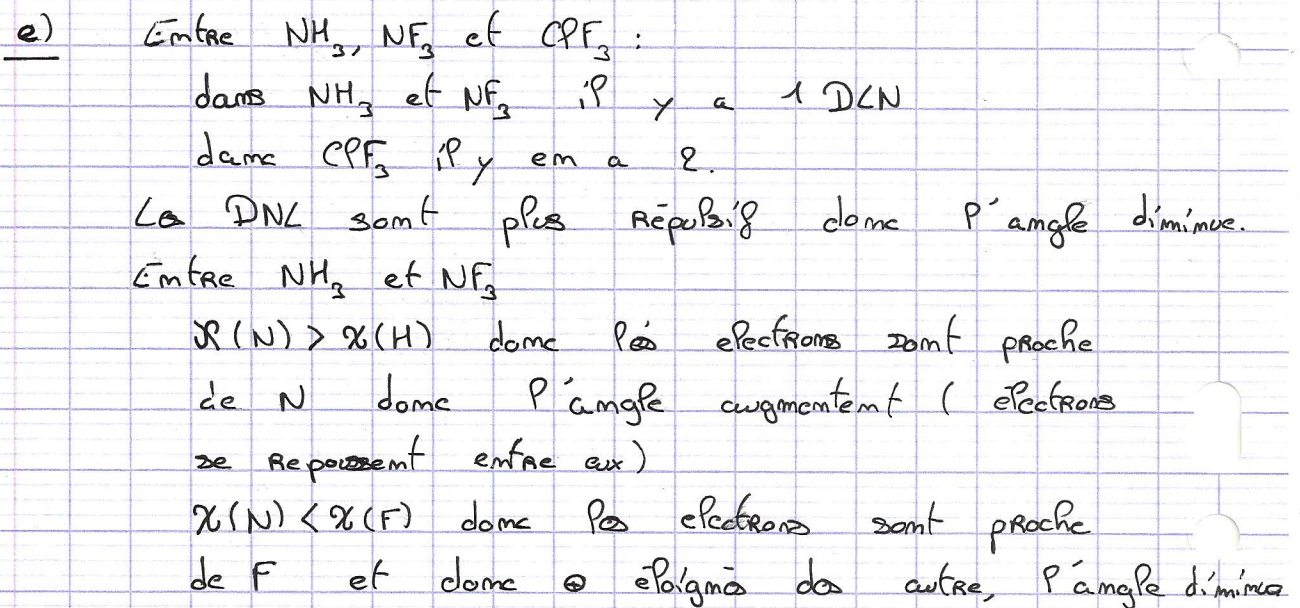 e) Entre NH₃, NF₃ et ClF₃ :
dans NH₃ et NF₃ il y a 1 DLN
danc ClF₃ il y en a 2.
Les DNL sont plus répulsif donc l'angle diminue.
Entre NH₃ et NF₃
χ(N) > χ(H) donc les electrons sont proche
de N donc l'angle augmentent ( électrons
se repoussent entre eux)
χ(N) < χ(F) donc les electrons sont proche
de F et donc ⊕ éloignés des autre, l'angle diminue